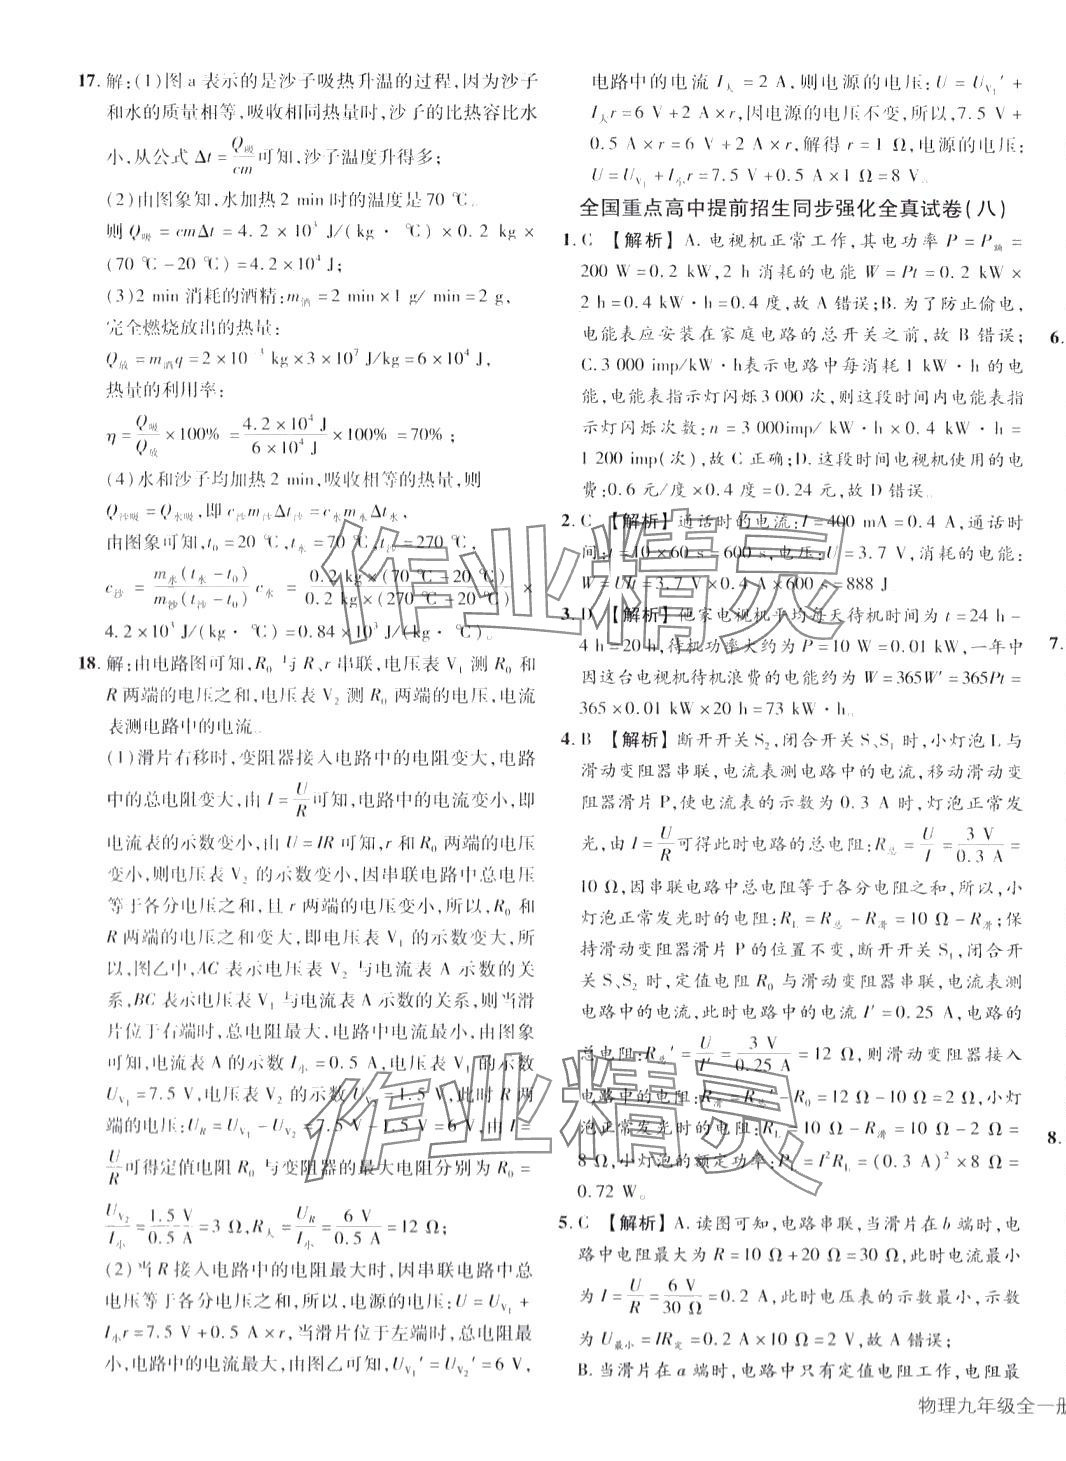 17. 解:(1)图 a 表示的是沙子吸热升温的过程,因为沙子
和水的质量相等,吸收相同热量时,沙子的比热容比水
小,从公式 Δt=Q吸/cm 可知,沙子温度升得多;
(2)由图象知,水加热 2 min 时的温度是 70 ℃。
则 Q吸=cmΔt=4.2×10³ J/(kg·℃)×0.2 kg×
(70 ℃-20 ℃)=4.2×10⁴ J;
(3)2 min 消耗的酒精:m酒=2 min×1 g/ min=2 g,
完全燃烧放出的热量:
Q放=m酒q=2×10⁻³ kg×3×10⁷ J/kg=6×10⁴ J,
热量的利用率:
η=Q吸/Q放×100% =4.2×10⁴ J/6×10⁴ J×100% =70% ;
(4)水和沙子均加热 2 min,吸收相等的热量,则
Q沙吸=Q水吸,即 c沙m沙Δt沙=c水m水Δt水,
由图象可知,t₀=20 ℃,t水=70 ℃,t沙=270 ℃,
c沙=m水(t水-t₀)/m沙(t沙-t₀) c水=0.2 kg×(70 ℃-20 ℃)/0.2 kg×(270 ℃-20 ℃)×
4.2×10³ J/(kg·℃)=0.84×10³ J/(kg·℃)。
18. 解:由电路图可知,R₀ 与 R、r 串联,电压表 V₁ 测 R₀ 和
R 两端的电压之和,电压表 V₂ 测 R₀ 两端的电压,电流
表测电路中的电流。
(1)滑片右移时,变阻器接入电路中的电阻变大,电路
中的总电阻变大,由 I=U/R可知,电路中的电流变小,即
电流表的示数变小,由 U=IR 可知,r 和 R₀ 两端的电压
变小,则电压表 V₂ 的示数变小,因串联电路中总电压
等于各分电压之和,且 r 两端的电压变小,所以,R₀ 和
R 两端的电压之和变大,即电压表 V₁ 的示数变大,所
以,图乙中,AC 表示电压表 V₂ 与电流表 A 示数的关
系,BC 表示电压表 V₁ 与电流表 A 示数的关系,则当滑
片位于右端时,总电阻最大,电路中电流最小,由图象
可知,电流表 A 的示数 I小=0.5 A,电压表 V₁ 的示数
U_V₁=7.5 V,电压表 V₂ 的示数 U_V₂=1.5 V,此时 R 两
端的电压:U_R=U_V₁-U_V₂=7.5 V-1.5 V=6 V,由 I=
U/R可得定值电阻 R₀ 与变阻器的最大电阻分别为 R₀=
U_V₂/I小=1.5 V/0.5 A=3 Ω,R大=U_R/I小=6 V/0.5 A=12 Ω;
(2)当 R 接入电路中的电阻最大时,因串联电路中总
电压等于各分电压之和,所以,电源的电压:U=U_V₁+
I小r=7.5 V+0.5 A×r,当滑片位于左端时,总电阻最
小,电路中的电流最大,由图乙可知,U_V₁′=U_V₂′=6 V,
电路中的电流 I大=2 A,则电源的电压:U=U_V₁′+
I大r=6 V+2 A×r,因电源的电压不变,所以,7.5 V+
0.5 A×r=6 V+2 A×r,解得 r=1 Ω,电源的电压:
U=U_V₁+I小r=7.5 V+0.5 A×1 Ω=8 V。
全国重点高中提前招生同步强化全真试卷(八)
1. C 【解析】A. 电视机正常工作,其电功率 P=P额=
200 W=0.2 kW,2 h 消耗的电能 W=Pt=0.2 kW×
2 h=0.4 kW·h=0.4 度,故 A 错误;B. 为了防止偷电,
电能表应安装在家庭电路的总开关之前,故 B 错误;
C.3 000 imp/kW·h表示电路中每消耗 1 kW·h 的电
能,电能表指示灯闪烁 3 000 次,则这段时间内电能表指
示灯闪烁次数:n=3 000imp/ kW·h×0.4 kW·h=
1 200 imp(次),故 C 正确;D. 这段时间电视机使用的电
费:0.6 元/度×0.4 度=0.24 元,故 D 错误。
2. C 【解析】通话时的电流:I=400 mA=0.4 A,通话时
间:t=10×60 s=600 s,电压:U=3.7 V,消耗的电能:
W=UIt=3.7 V×0.4 A×600 s=888 J
3. D 【解析】他家电视机平均每天待机时间为 t=24 h-
4 h=20 h,待机功率大约为 P=10 W=0.01 kW,一年中
因这台电视机待机浪费的电能约为 W=365W′=365Pt=
365×0.01 kW×20 h=73 kW·h。
4. B 【解析】断开开关 S₂,闭合开关 S、S₁ 时,小灯泡 L 与
滑动变阻器串联,电流表测电路中的电流,移动滑动变
阻器滑片 P,使电流表的示数为 0.3 A 时,灯泡正常发
光,由 I=U/R可得此时电路的总电阻:R总=U/I=3 V/0.3 A=
10 Ω,因串联电路中总电阻等于各分电阻之和,所以,小
灯泡正常发光时的电阻:R_L=R总-R滑=10 Ω-R滑;保
持滑动变阻器滑片 P 的位置不变,断开开关 S₁,闭合开
关 S、S₂ 时,定值电阻 R₀ 与滑动变阻器串联,电流表测
电路中的电流,此时电路中的电流 I′=0.25 A,电路的
总电阻:R总′=U/I′=3 V/0.25 A=12 Ω,则滑动变阻器接入
电路中的电阻:R滑=R总′-R₀=12 Ω-10 Ω=2 Ω,小灯
泡正常发光时的电阻:R_L=10 Ω-R滑=10 Ω-2 Ω=
8 Ω,小灯泡的额定功率:P_L=I²R_L=(0.3 A)²×8 Ω=
0.72 W。
5. C 【解析】A. 读图可知,电路串联,当滑片在 b 端时,电
路中电阻最大为 R=10 Ω+20 Ω=30 Ω,此时电流最小
为 I=U/R=6 V/30 Ω=0.2 A,此时电压表的示数最小,示数
为 U最小=IR定=0.2 A×10 Ω=2 V,故 A 错误;
B. 当滑片在 a 端时,电路中只有定值电阻工作,电阻最
6.
7.
8.
作业精灵
作业精灵
物理九年级全一册